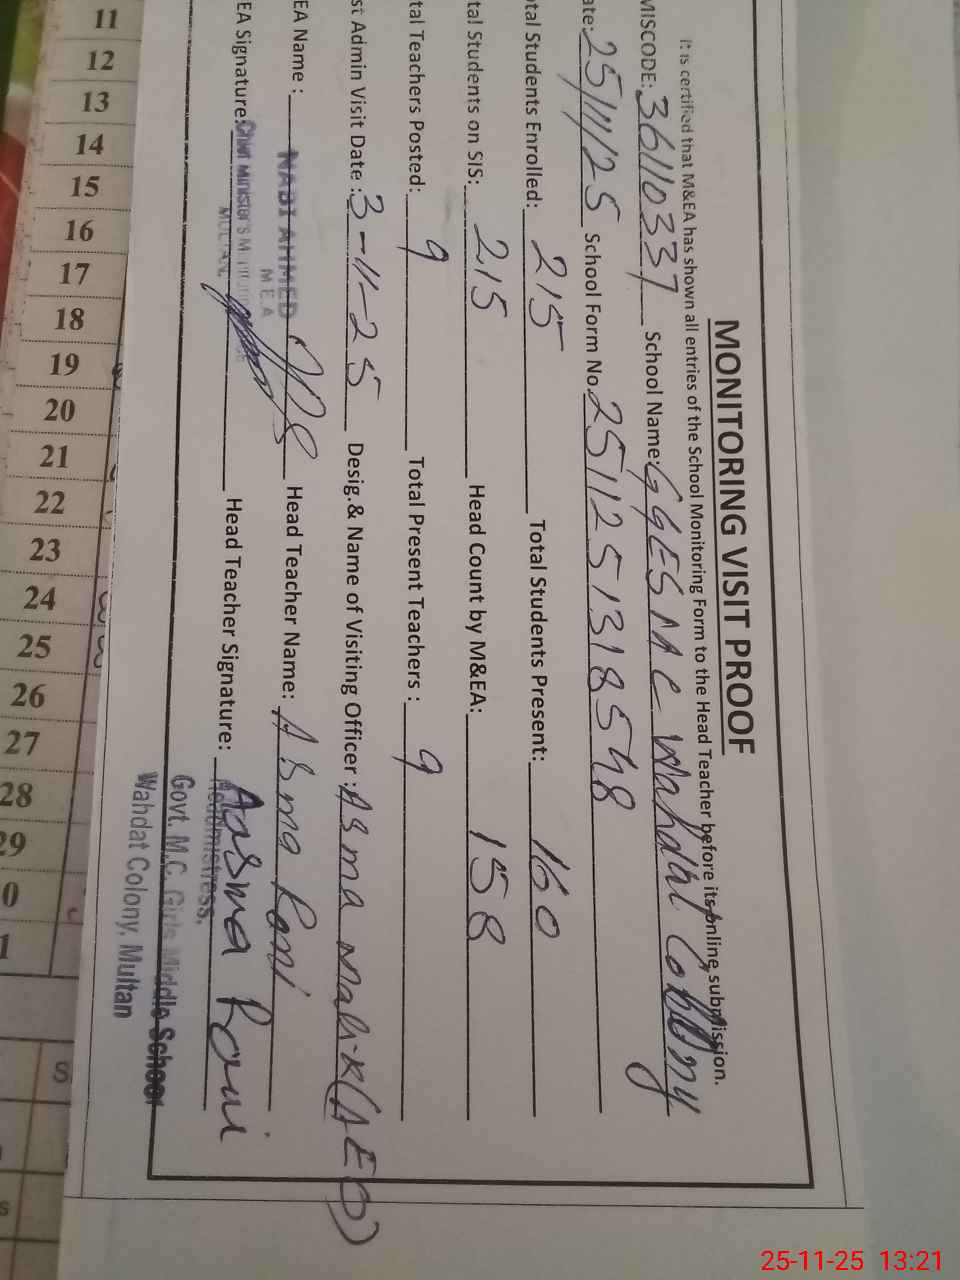 MONITORING VISIT PROOF
It is certified that M&EA has shown all entries of the School Monitoring Form to the Head Teacher before its online submission.
MISCODE: 36110337 School Name: GGES M C Wahdat Colony
ate: 25/11/25 School Form No. 2511251318548
tal Students Enrolled: 215 Total Students Present: 160
tal Students on SIS: 215 Head Count by M&EA: 158
tal Teachers Posted: 9 Total Present Teachers : 9
st Admin Visit Date : 3-11-25 Desig.& Name of Visiting Officer : Asma Malik (AEO)
EA Name : NABI AHMED Head Teacher Name: Asma Rani
M E A
EA Signature: Chief Minister's Head Teacher Signature: Aasma Rani
MULTAN.
Headmistress,
Govt. M.C. Girls Middle School
Wahdat Colony, Multan
11
12
13
14
15
16
17
18
19
20
21
22
23
24
25
26
27
28
29
0
1
S
s
25-11-25 13:21